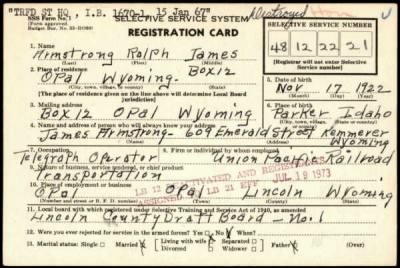 "TRFD ST HQ, I.B. 1670-1, 15 Jan 67" Destroyed
SSS Form No. 1
(Form approved.
Budget Bur. No. 33-R0260)
SELECTIVE SERVICE SYSTEM
REGISTRATION CARD
SELECTIVE SERVICE NUMBER
48 12 22 21
(Registrar will not enter Selective Service number)
1. Name
Armstrong Rolph James
2. Place of residence Box 12
Opal Wyoming
(City, town, village, or county) (State)
(The place of residence given on the line above will determine Local Board jurisdiction)
5. Date of birth
Nov 17 1922
3. Mailing address
Box 12 Opal Wyoming
6. Place of birth
Parker Idaho
(City, town, or county) (State)
4. Name and address of person who will always know your address
James Armstrong - 609 Emerald Street Kemmerer Wyoming
7. Occupation
8. Firm or individual by whom employed
Telegraph Operator Union Pacific Railroad
9. Nature of business, service rendered, or chief product
Transportation
LB 12 JUL 19 1973
LB 21 EFF
10. Place of employment or business
Opal Opal Lincoln Wyoming
(City, town, or village) (County) (State)
11. Local board with which registered under Selective Training and Service Act of 1940, as amended
Lincoln County Draft Board - No. 1
12. Were you ever rejected for service in the armed forces? Yes No When?
13. Marital status: Single Married Living with wife Separated Widowed Divorced Father